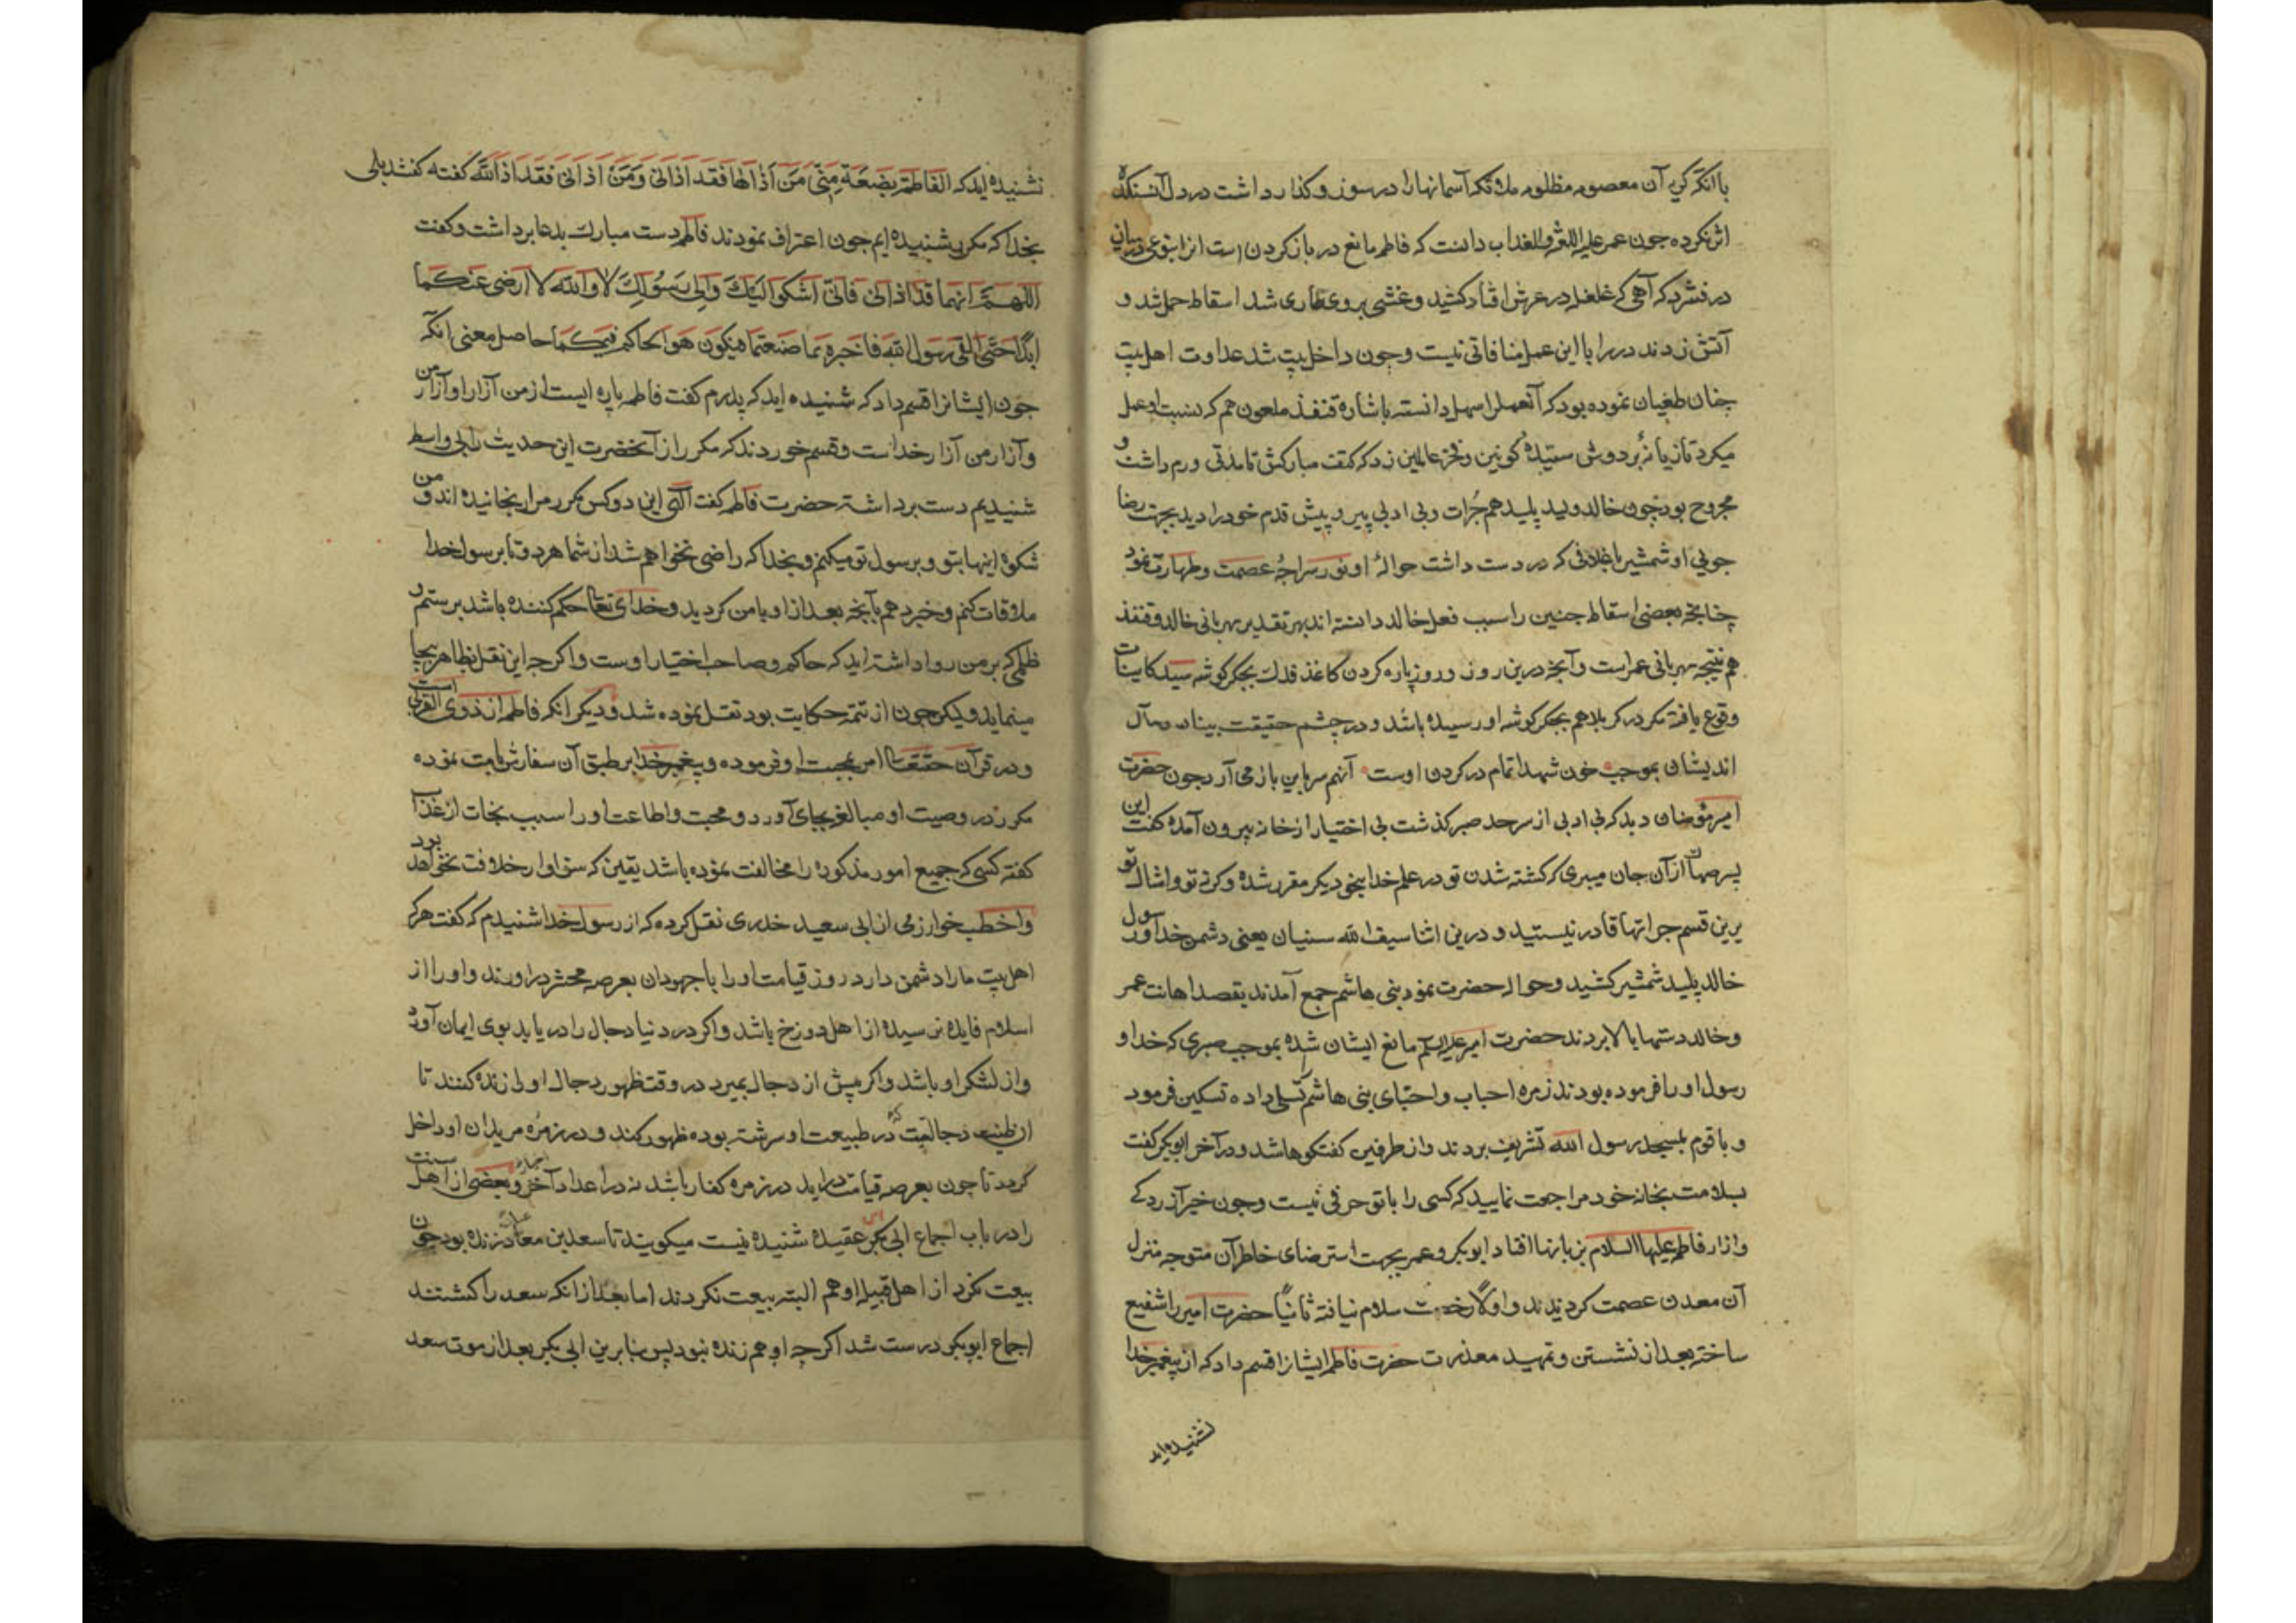 با آنکه گریه آن معصومه مظلومه ملائکه آسمانها را در سوز و گداز داشت در دل آن سنگدل
اثر نکرده چون عمر علیه اللعنة والعذاب دانست که فاطمه مانع در باز کردن است از این نوعی در میان
در فشرد که آهی که غلغله در عرش افتاد کشید و غشی بروی طاری شد اسقاط حمل شد و
آتش زدند در را با این عمل منافاتی نیست و چون داخل بیت شد عداوت اهل بیت
چنان طغیان نموده بود که آنعمل را سهل دانسته باشاره قنفذ ملعون هم که نسبت او عمل
میکرد تازیانه بر دوش سیدۀ کونین و فخر عالمین زد که کتف مبارکش تا مدتی ورم داشت و
مجروح بود چون خالد ولید پلید هم جرات و بی ادبی پیر و پیش قدم خود را دید بجهت رضا
جویی او شمشیر با غلافی که در دست داشت حوالۀ او نور سراچۀ عصمت و طهارت نمود
چنانچه بعضی اسقاط جنین را سبب فعل خالد دانسته اند بهر تقدیر بهربانی خالد و قنفذ
هم نتیجه بهربانی عمر است و آنچه درین روز و روز پاره کردن کاغذ فدك بجگر گوشه سید کاینات
وقوع یافته مکر در کربلا هم بجگر گوشه او رسیده باشد و در چشم حقیقت بینان مآل
اندیشان بموجب خون شهدا تمام در کردن اوست آنهم سر باین باز می آرد چون حضرت
امیر مؤمنان دید که بی ادبی از سر حد صبر گذشت بی اختیار از خانه بیرون آمده گفت این
پسر صهاک از آن جان میبری که کشته شدن تو در علم خدا بنحو دیگر مقرر شده و کرنه تو و امثال تو
برین قسم جراتها قادر نیستید و درین اثنا سیف الله سنیان یعنی دشمن خدا و رسول
خالد پلید شمشیر کشید و حواله حضرت نمود بنی هاشم جمع آمدند بقصد اهانت عمر
و خالد دستها بالا بردند حضرت امیر علیه السلام مانع ایشان شده بموجب صبری که خدا و
رسول او را فرموده بودند زمره احباب و احبای بنی هاشم را تسلی داده تسکین فرمود
و با قوم بمسجد رسول الله تشریف بردند و از طرفین گفتگوها شد و در آخر ابوبکر گفت
بسلامت بخانه خود مراجعت نمایید که کسی را با تو حرفی نیست و چون خیر آزردگی
و ازار فاطمه علیها السلام بر زبانها افتاد ابوبکر و عمر بجهت استرضای خاطر آن متوجه منزل
آن معدن عصمت گردیدند و اولاً رخصت سلام نیافته ثانیاً حضرت امیر را شفیع
ساخته بعد از نشستن و تمهید معذرت حضرت فاطمه ایشانرا قسم داد که از پیغمبر خدا
نشنیده اید
نشنیده اید که الفاطمة بضعة منی من آذاها فقد اذانی ومن اذانی فقد اذ الله گفته گفتند بلی
بخدا که مکرر شنیده ایم چون اعتراف نمودند فاطمه دست مبارك بدعا برداشت و گفت
اللهم انهما قد اذانی فانی اشکو الیك والی رسولك لا والله لا ارضی عنکما
ابدا حتی القی رسول الله فاخبره بما صنعتما فیکون هو الحاکم فیکما حاصل معنی آنکه
چون ایشانرا قسم داد که شنیده اید که پدرم گفت فاطمه پاره ایست از من آزار او آزار من
و آزار من آزار خداست و قسم خوردند که مکرر از آنحضرت این حدیث را بی واسطه
شنیدیم دست برداشته حضرت فاطمه گفت الهی این دو کس مکرر مرا رنجانیده اند و من
شکوۀ اینها بتو و برسول تو میکنم و بخدا که راضی نخواهم شد از شما هر دو تا برسول خدا
ملاقات کنم و خبر دهم بآنچه بعد از او با من کردید و خدای تعالی حکم کننده باشد بر ستم و
ظلمی که بر من روا داشته اید که حاکم و صاحب اختیار اوست و اگر چه این نقل بظاهر بیجا
مینماید ولیکن چون از تتمۀ حکایت بود نقل نموده شد و دیگر انکه فاطمه از ذوی القربی است
و در قرآن حقتعالی امر بمحبت او فرموده و پیغمبر خدا بر طبق آن سفارش بامت نموده
مکرر در وصیت او مبالغه بجای آورد و محبت و اطاعت او را سبب نجات از عذاب
گفته کسی که جمیع امور مذکوره را مخالفت نموده باشد یقین که سزاوار خلافت نخواهد بود
و اخطب خوارزمی از ابی سعید خدری نقل کرده که از رسول خدا شنیدم که گفت هرکه
اهل بیت ما را دشمن دارد روز قیامت او را با جهودان بعرصه محشر در اورند و او را از
اسلام فایده نرسیده از اهل دوزخ باشد و اگر در دنیا دجال را دریابد بوی ایمان آورده
و از لشکر او باشد و اگر پیش از دجال بمیرد در وقت ظهور دجال او را زنده کنند تا
آن طینت دجالیت که در طبیعت او سرشته بوده ظهور کند و در زمره مریدان او داخل
گردد تا چون بعرصه قیامت دراید در زمره کفار باشد نه در اعداد آخر و بعضی از اهل سنت
را در باب اجماع ابی بکر عقیده شنیده نیست میگویند تا سعد بن معاذ زنده بود چون
بیعت نکرد از اهل قبیله او هم البته بیعت نکردند اما بعد از انکه سعد را کشتند
اجماع ابوبکر درست شد اگر چه او هم زنده نبود پس بنابرین ابی بکر بعد از موت سعد